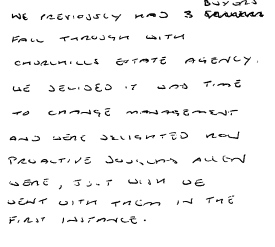 WE PREVIOUSLY HAD 3 BUYERS
FALL THROUGH WITH
CHURCHILLS ESTATE AGENCY.
WE DECIDED IT WAS TIME
TO CHANGE MANAGEMENT
AND WERE DELIGHTED HOW
PROACTIVE DOUGLAS ALLEN
WERE, JUST WISH WE
WENT WITH THEM IN THE
FIRST INSTANCE.